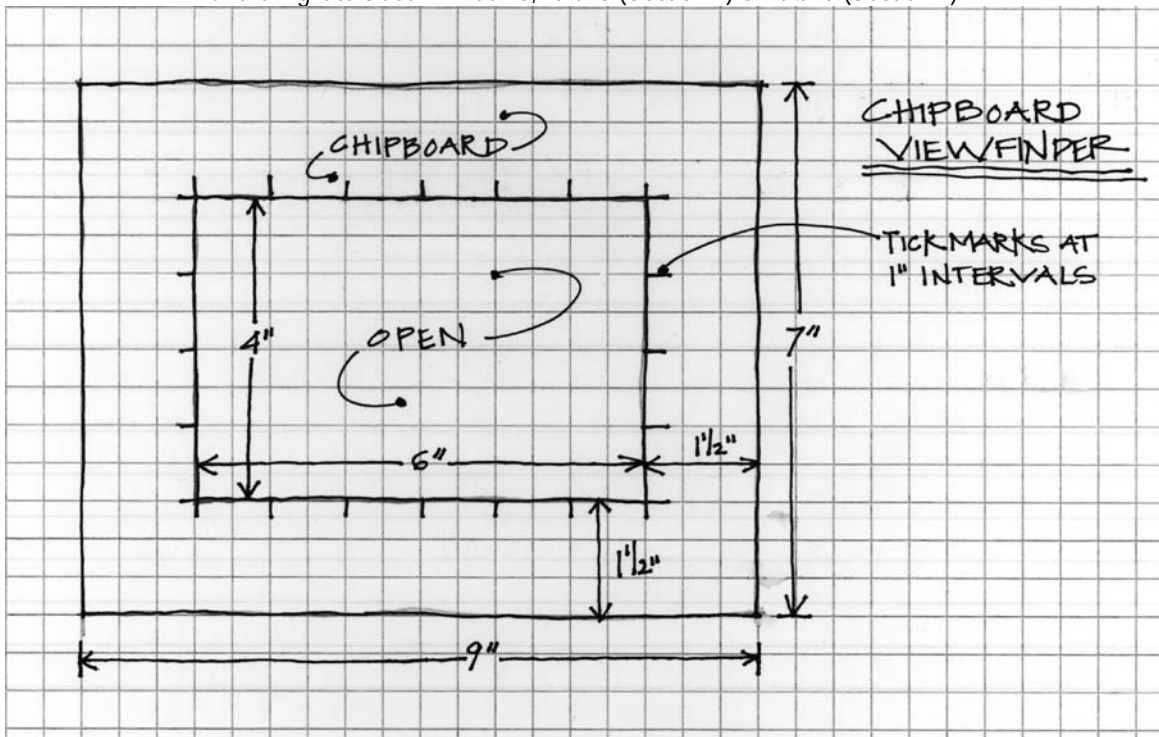 CHIPBOARD
VIEWFINDER
CHIPBOARD
TICKMARKS AT
1" INTERVALS
4"
OPEN
7"
6"
1 1/2"
1 1/2"
9"